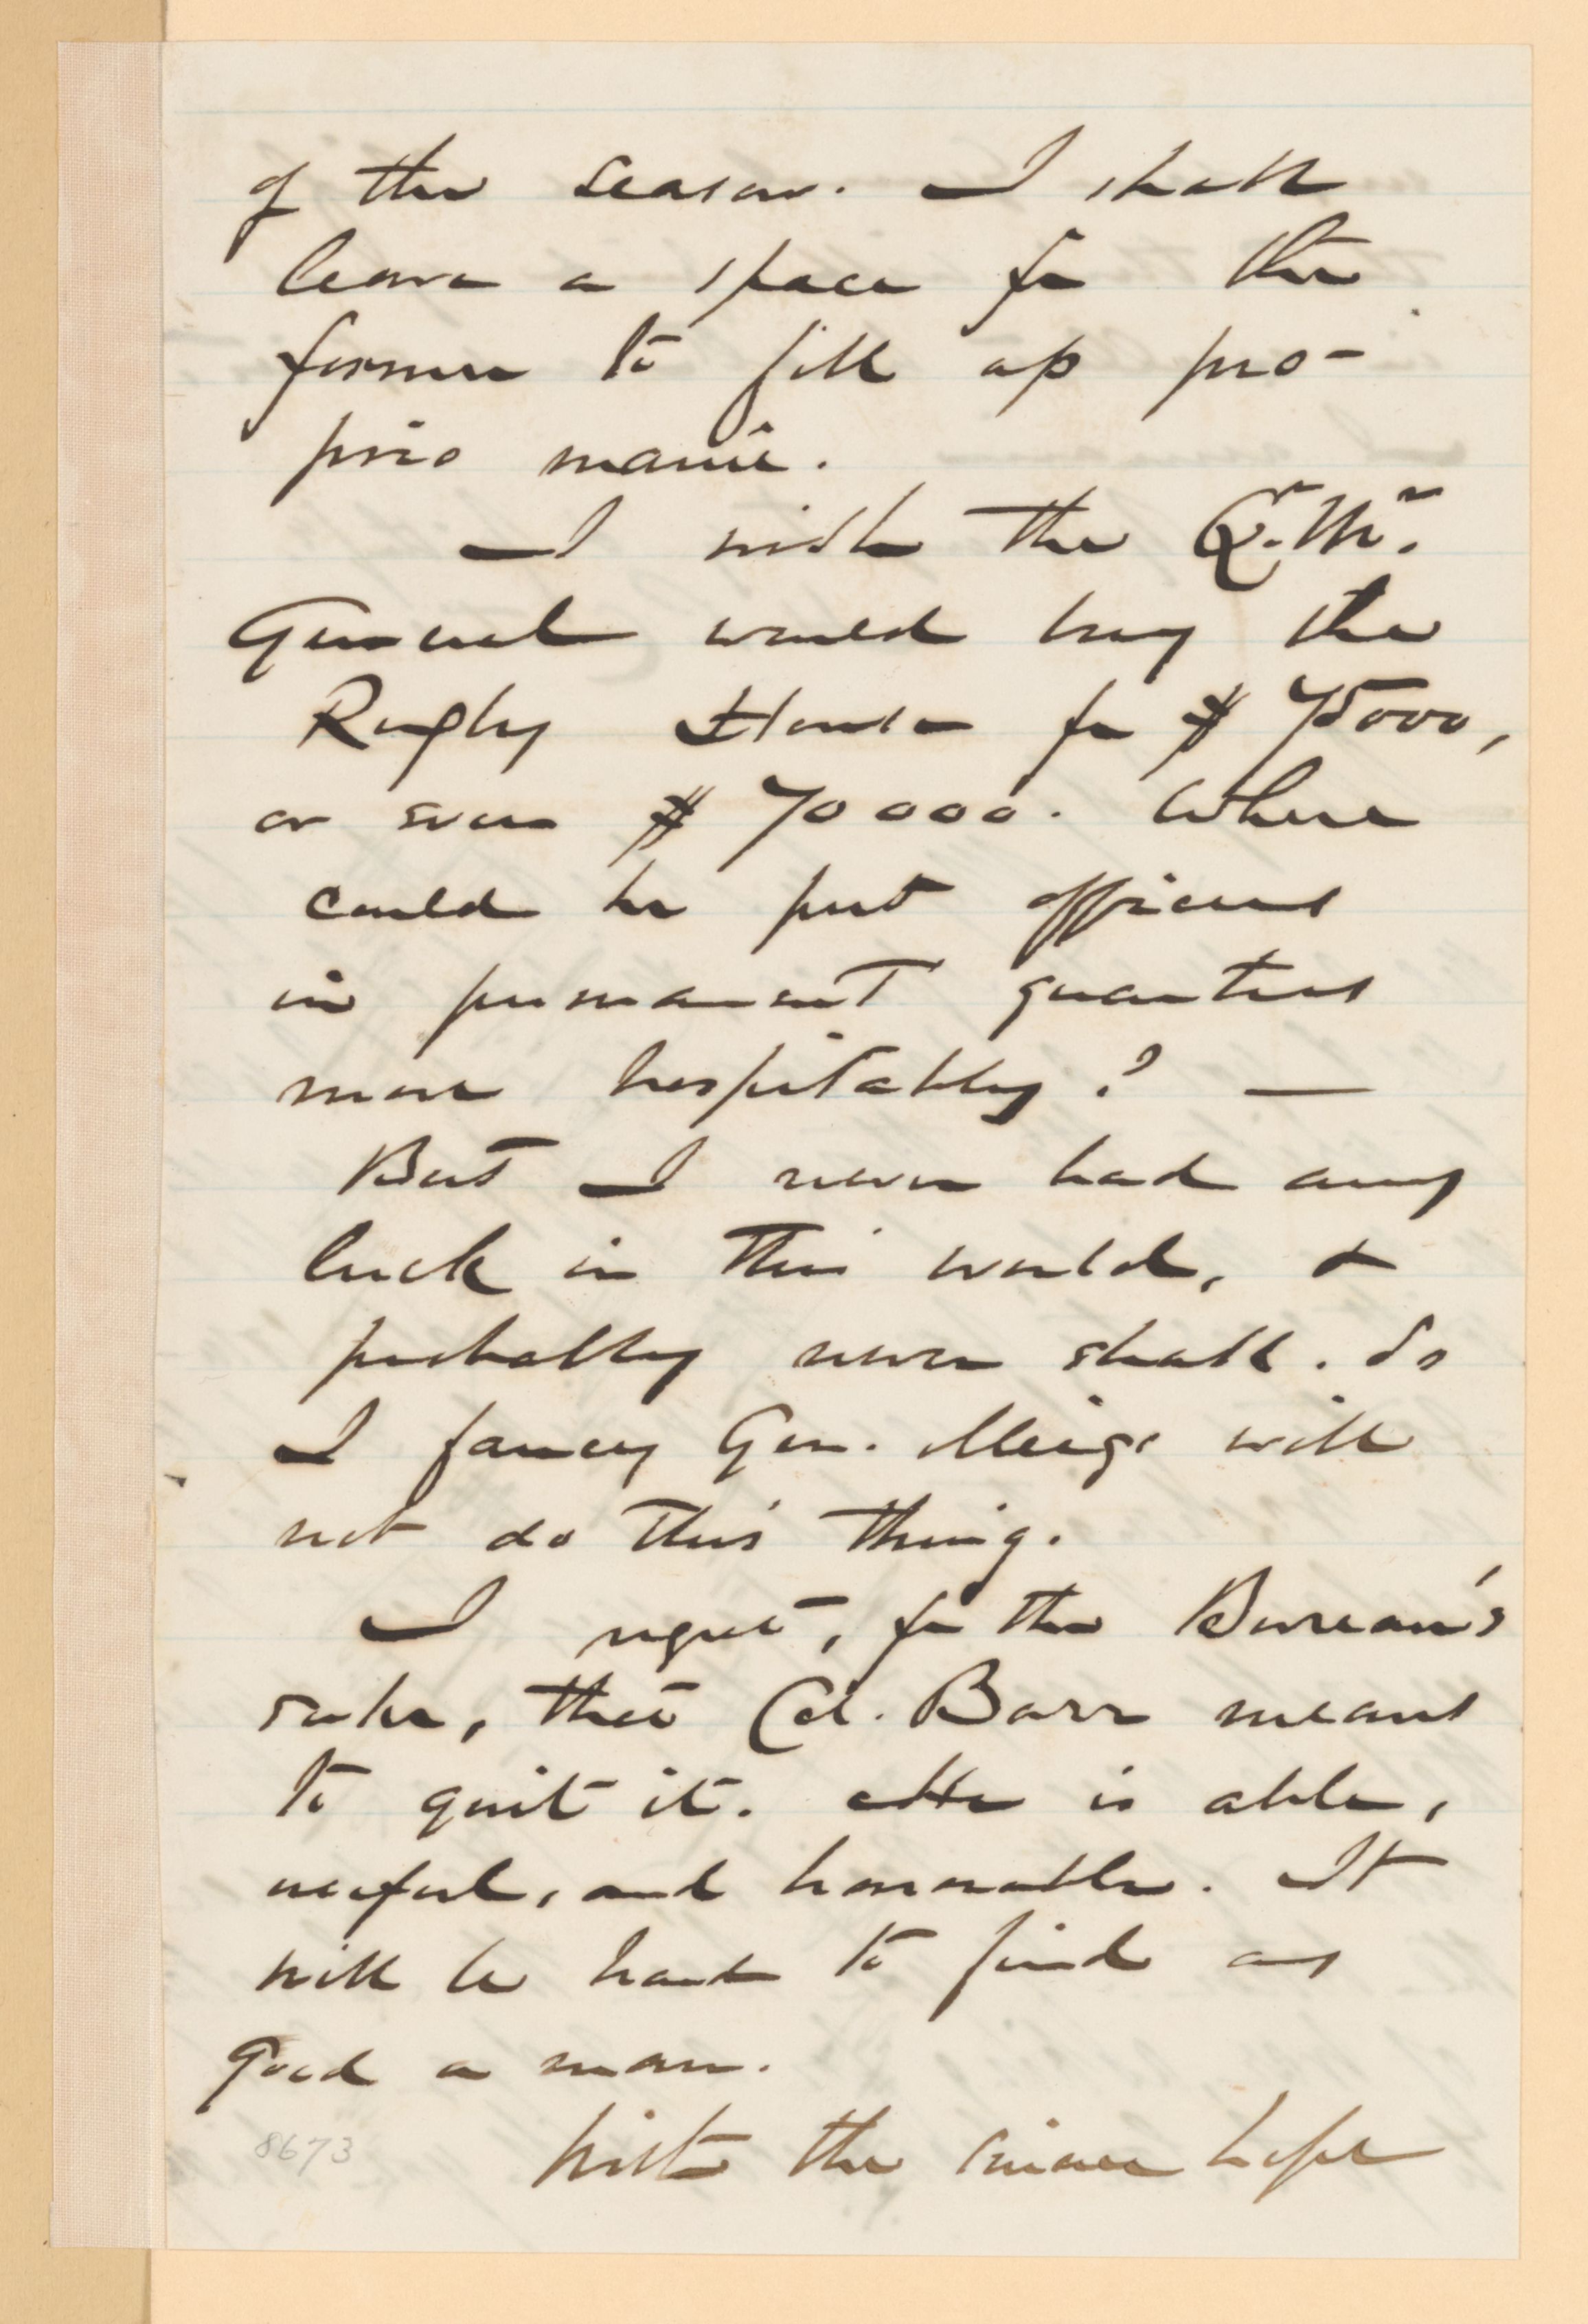 of the season. I shall
leave a space for the
former to fill up pro-
prio manû.
I wish the Qr. Mr.
General would buy the
Rugby House for $75000,
or even $70000. Where
could he put officers
in permanent quarters
more hospitably? —
But I never had any
luck in this world, &
probably never shall. So
I fancy Gen. Meigs will
not do this thing.
I regret, for the Bureau's
sake, that Col. Barr means
to quit it. He is able,
useful, and honorable. It
will be hard to find as
good a man.
With the sincere hope
8673